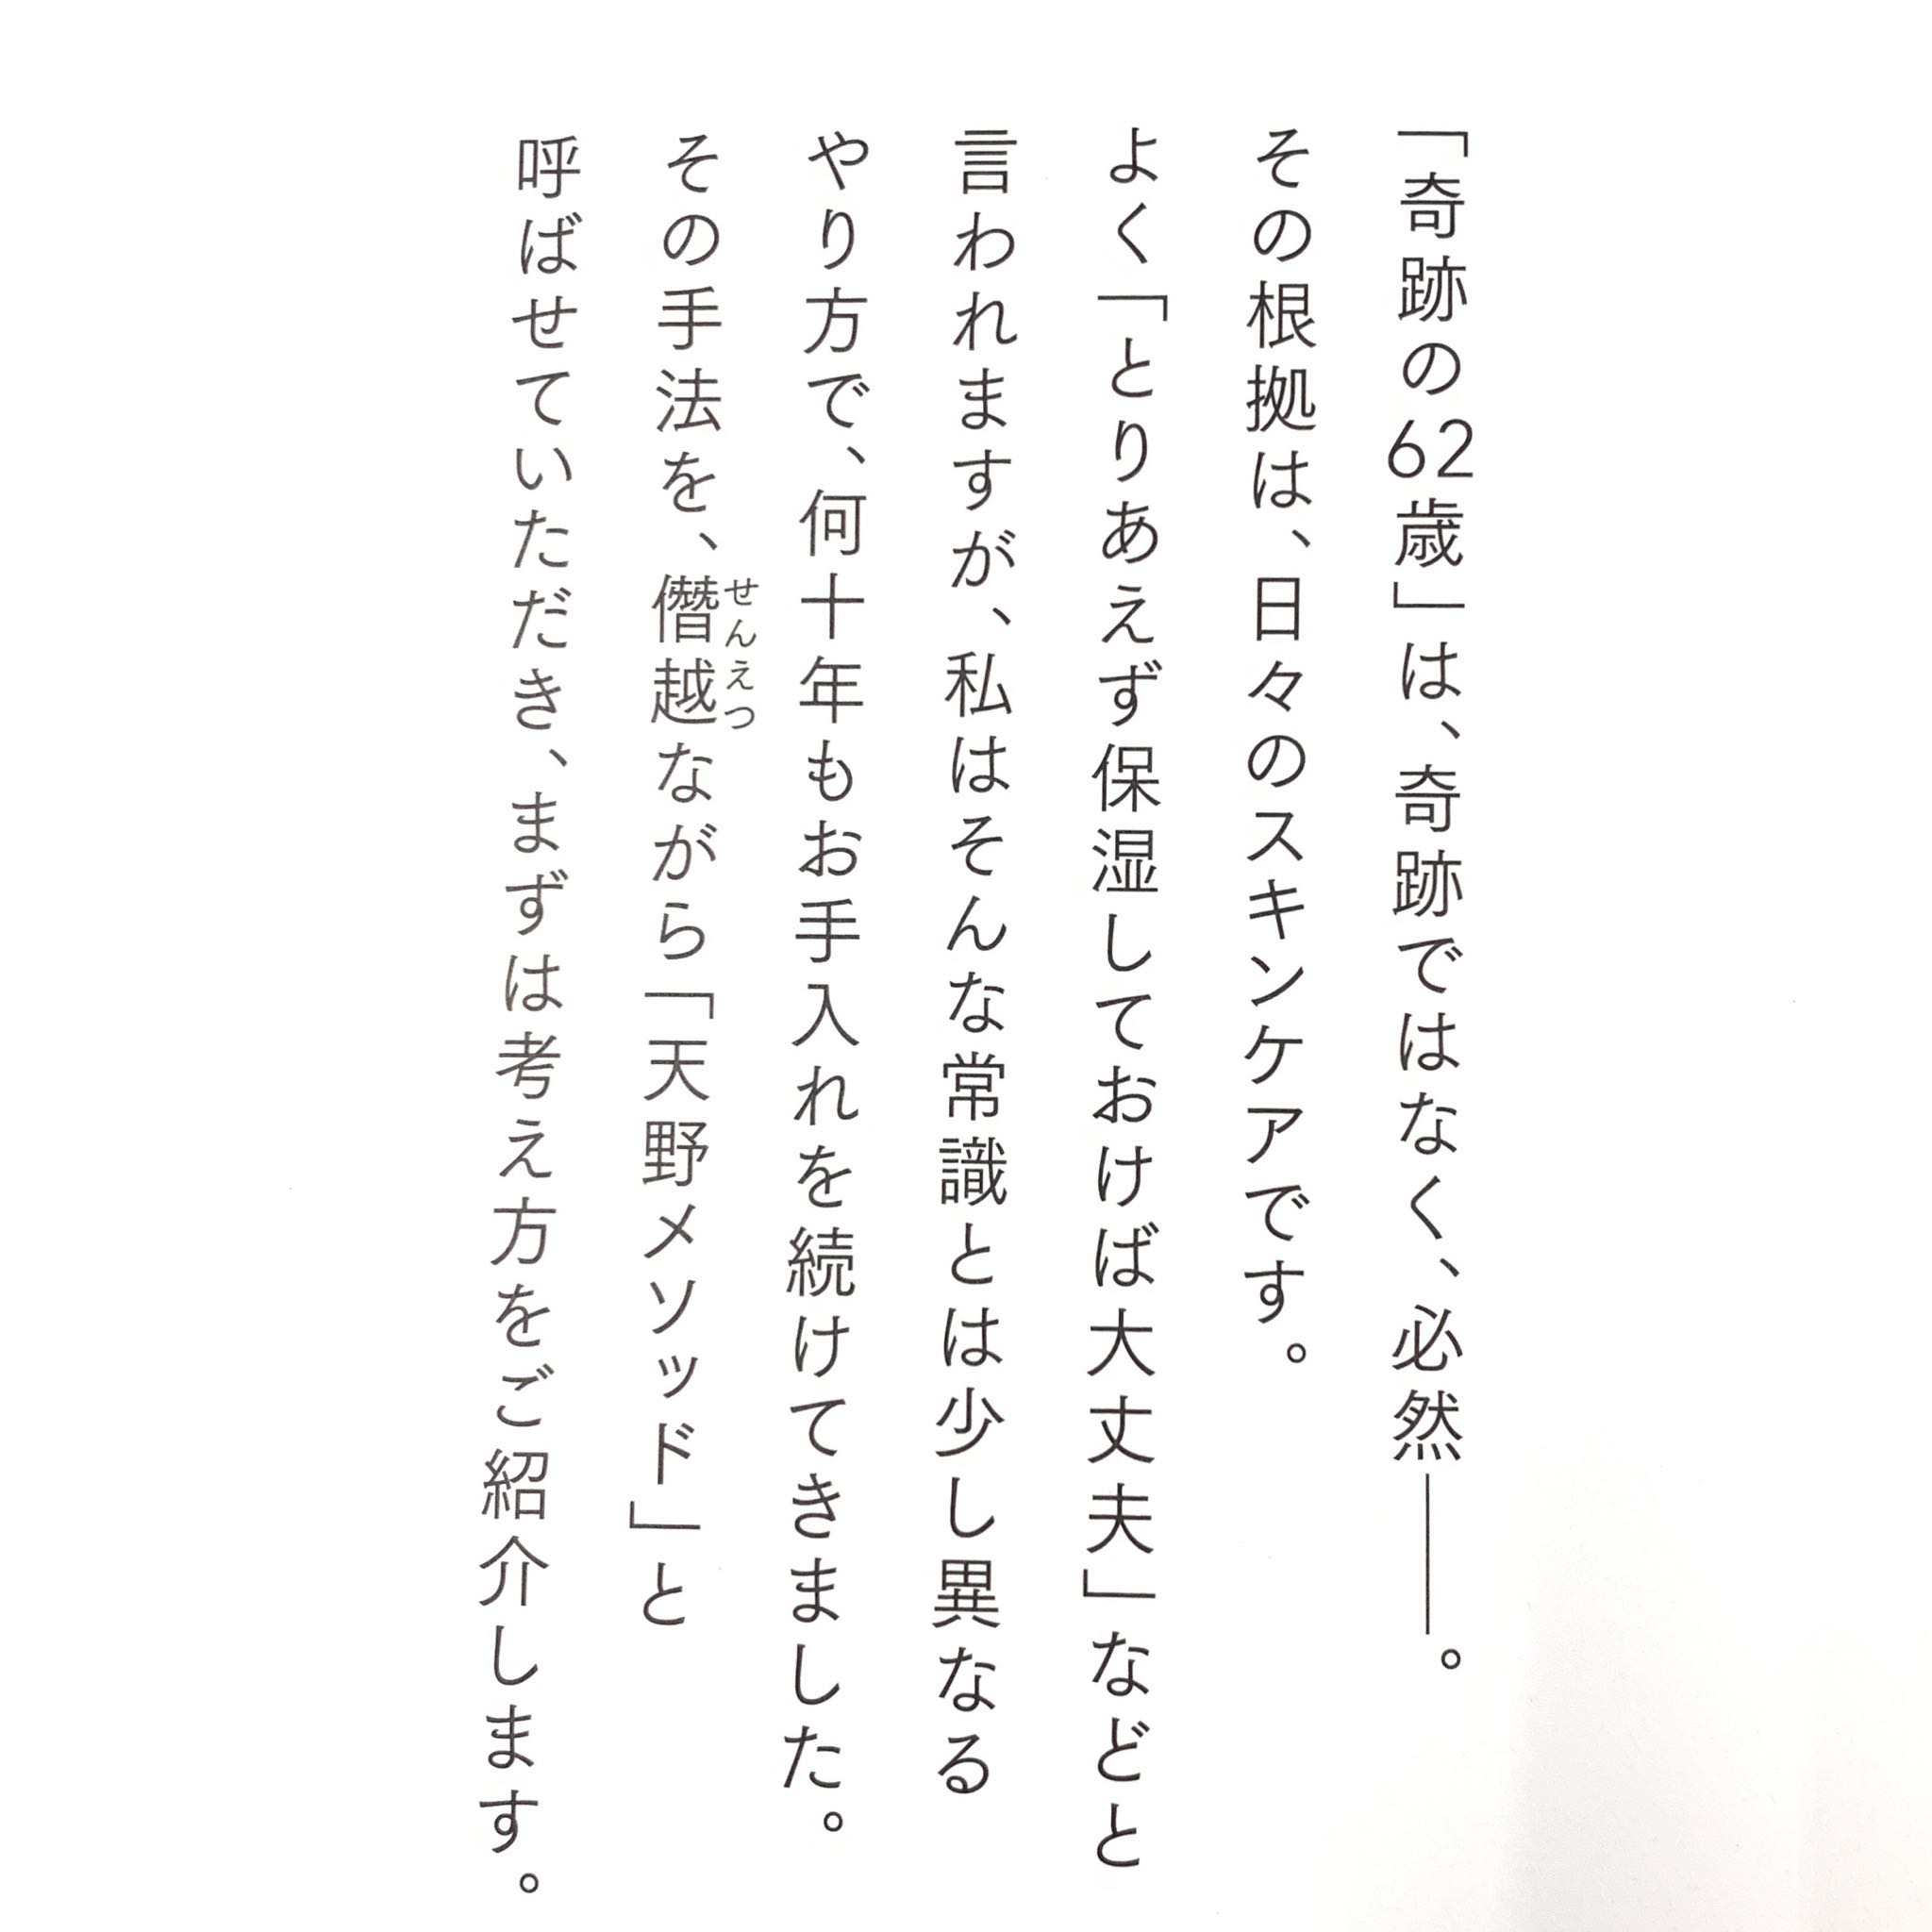 「奇跡の62歳」は、奇跡ではなく、必然――。
その根拠は、日々のスキンケアです。
よく「とりあえず保湿しておけば大丈夫」などと
言われますが、私はそんな常識とは少し異なる
やり方で、何十年もお手入れを続けてきました。
せんえつ
その手法を、僭越ながら「天野メソッド」と
呼ばせていただき、まずは考え方をご紹介します。